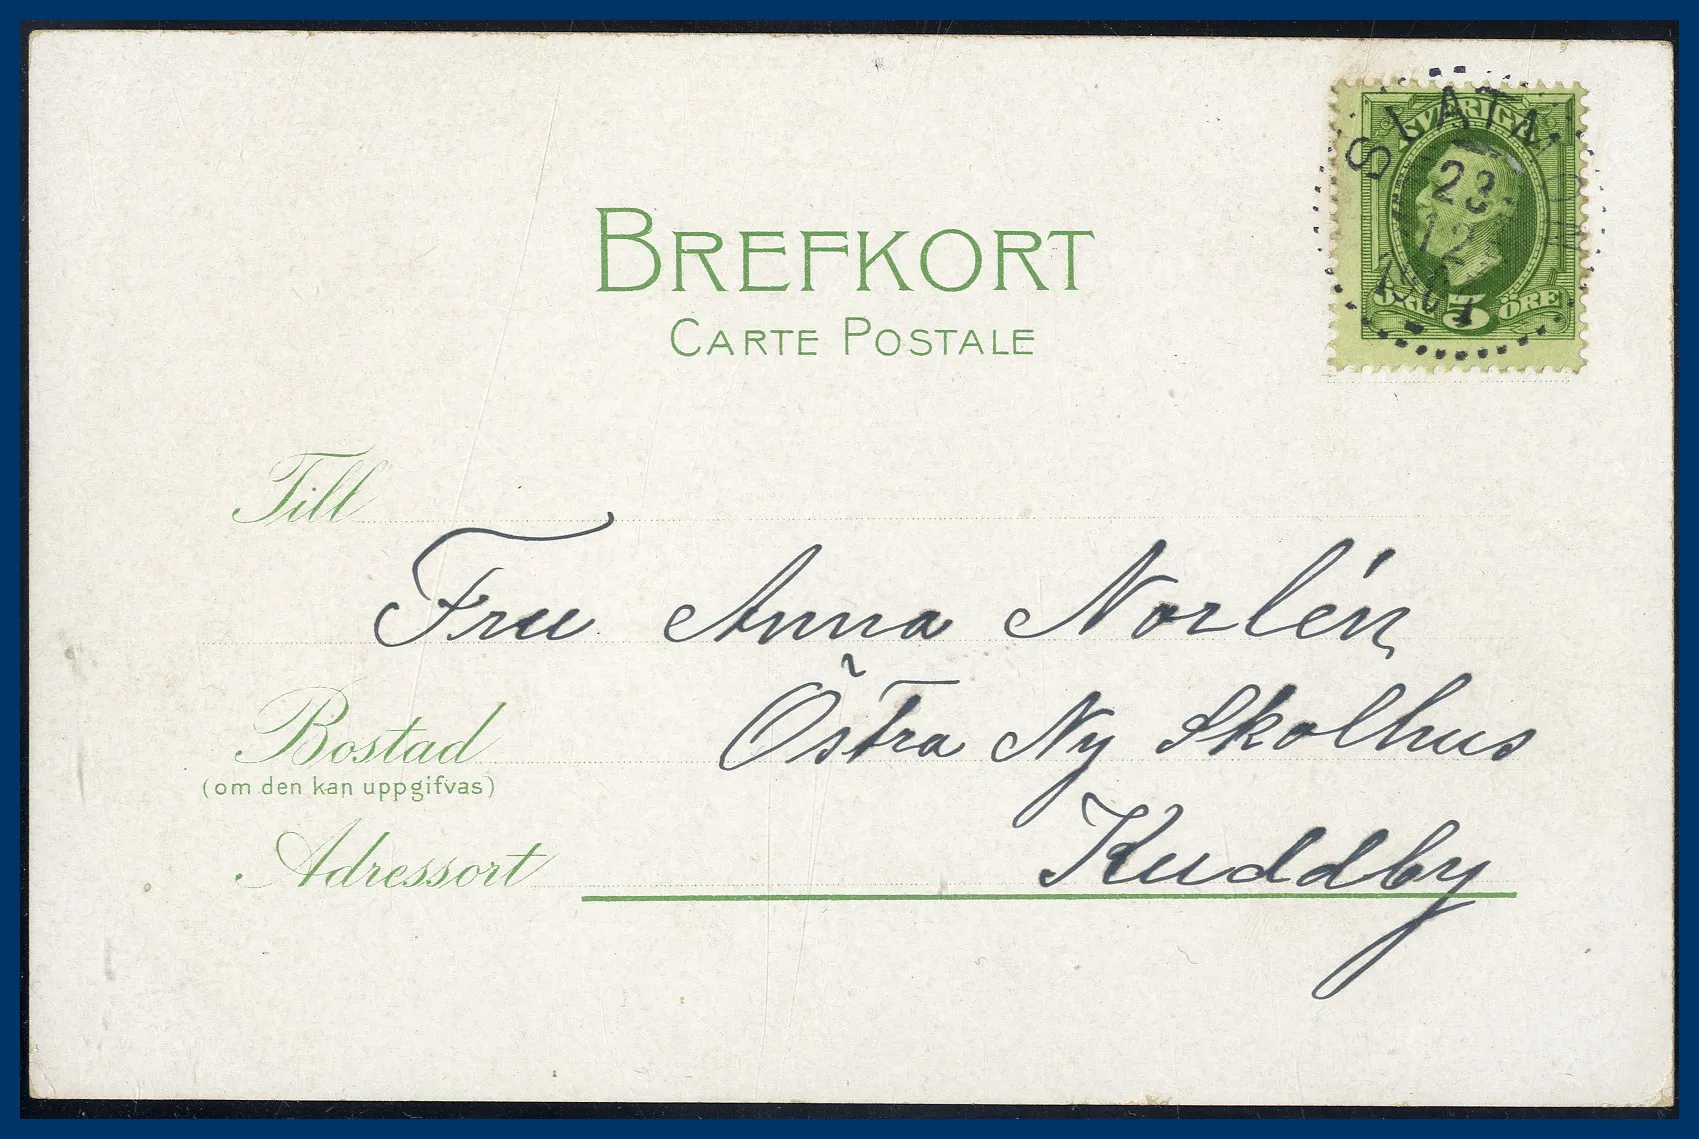 BREFKORT
CARTE POSTALE
SVERIGE
23
12
5 ÖRE
Till
Fru Anna Norlén
Bostad
Östra Ny Skolhus
(om den kan uppgifvas)
Adressort
Kuddby